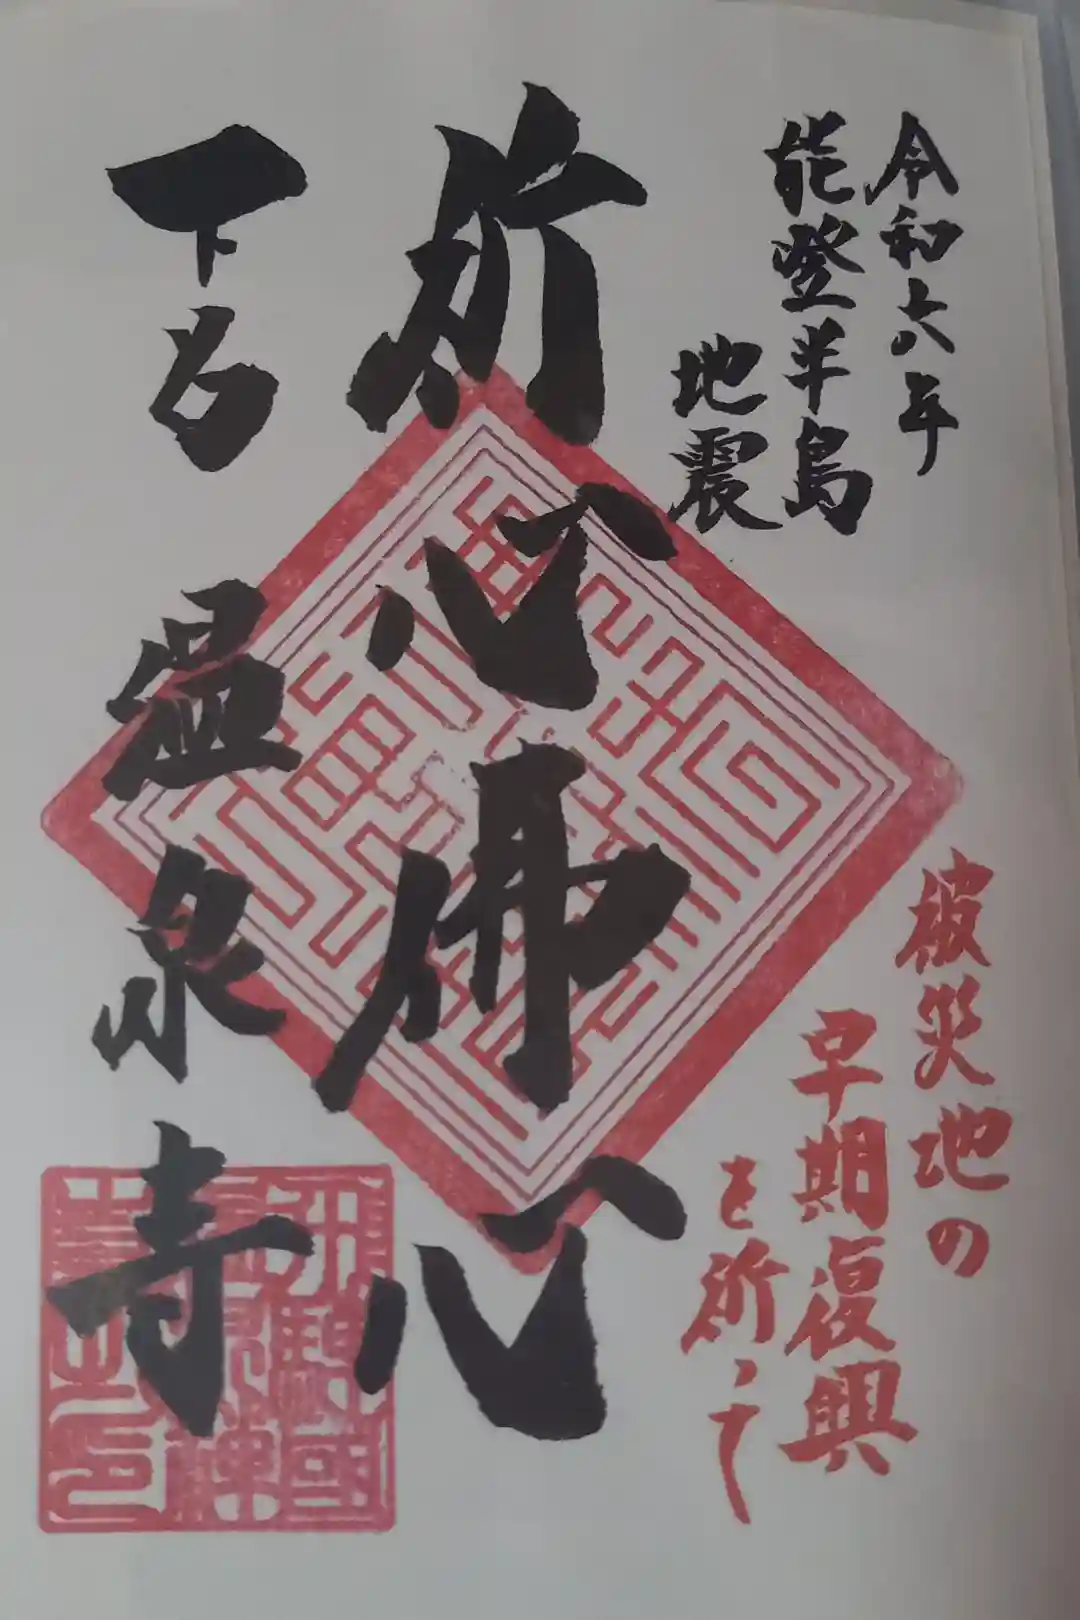 令和六年
能登半島
地震
被災地の
早期復興
を祈って
祈心佛心
下呂温泉寺